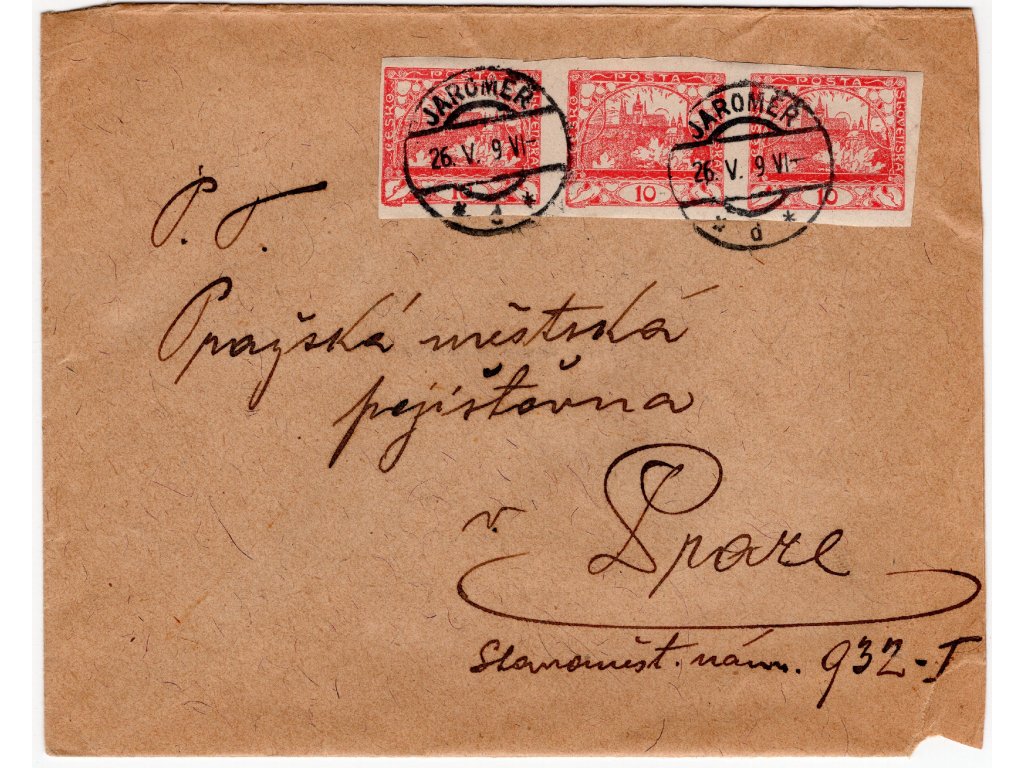 POŠTA POŠTA POŠTA
ČESKO SLOVENSKÁ
10 10 10
JAROMĚŘ JAROMĚŘ
26. V. 9 VI- 26. V. 9 VI-
* d * * d *
P. T.
Pražská městská
pojišťovna
v. Praze
Staroměst. nám. 932-I